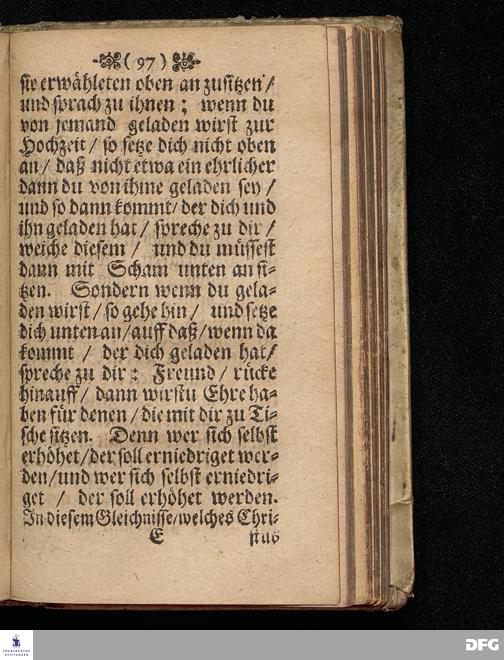 ( 97 )
sie erwähleten oben an zusitzen /
und sprach zu ihnen ; wenn du
von jemand geladen wirst zur
Hochzeit / so setze dich nicht oben
an / daß nicht etwa ein ehrlicher
dann du von ihme geladen sey /
und so dann kommt / der dich und
ihn geladen hat / spreche zu dir /
weiche diesem / und du müssest
dann mit Scham unten an si-
tzen. Sondern wenn du gela-
den wirst / so gehe hin / und setze
dich unten an / auff daß / wenn da
kommt / der dich geladen hat /
spreche zu dir : Freund / rücke
hinauff / dann wirstu Ehre ha-
ben für denen / die mit dir zu Ti-
sche sitzen. Denn wer sich selbst
erhöhet / der soll erniedriget wer-
den / und wer sich selbst erniedri-
get / der soll erhöhet werden.
In diesem Gleichnisse / welches Chri-
E stus
FRANCKESCHE STIFTUNGEN
DFG